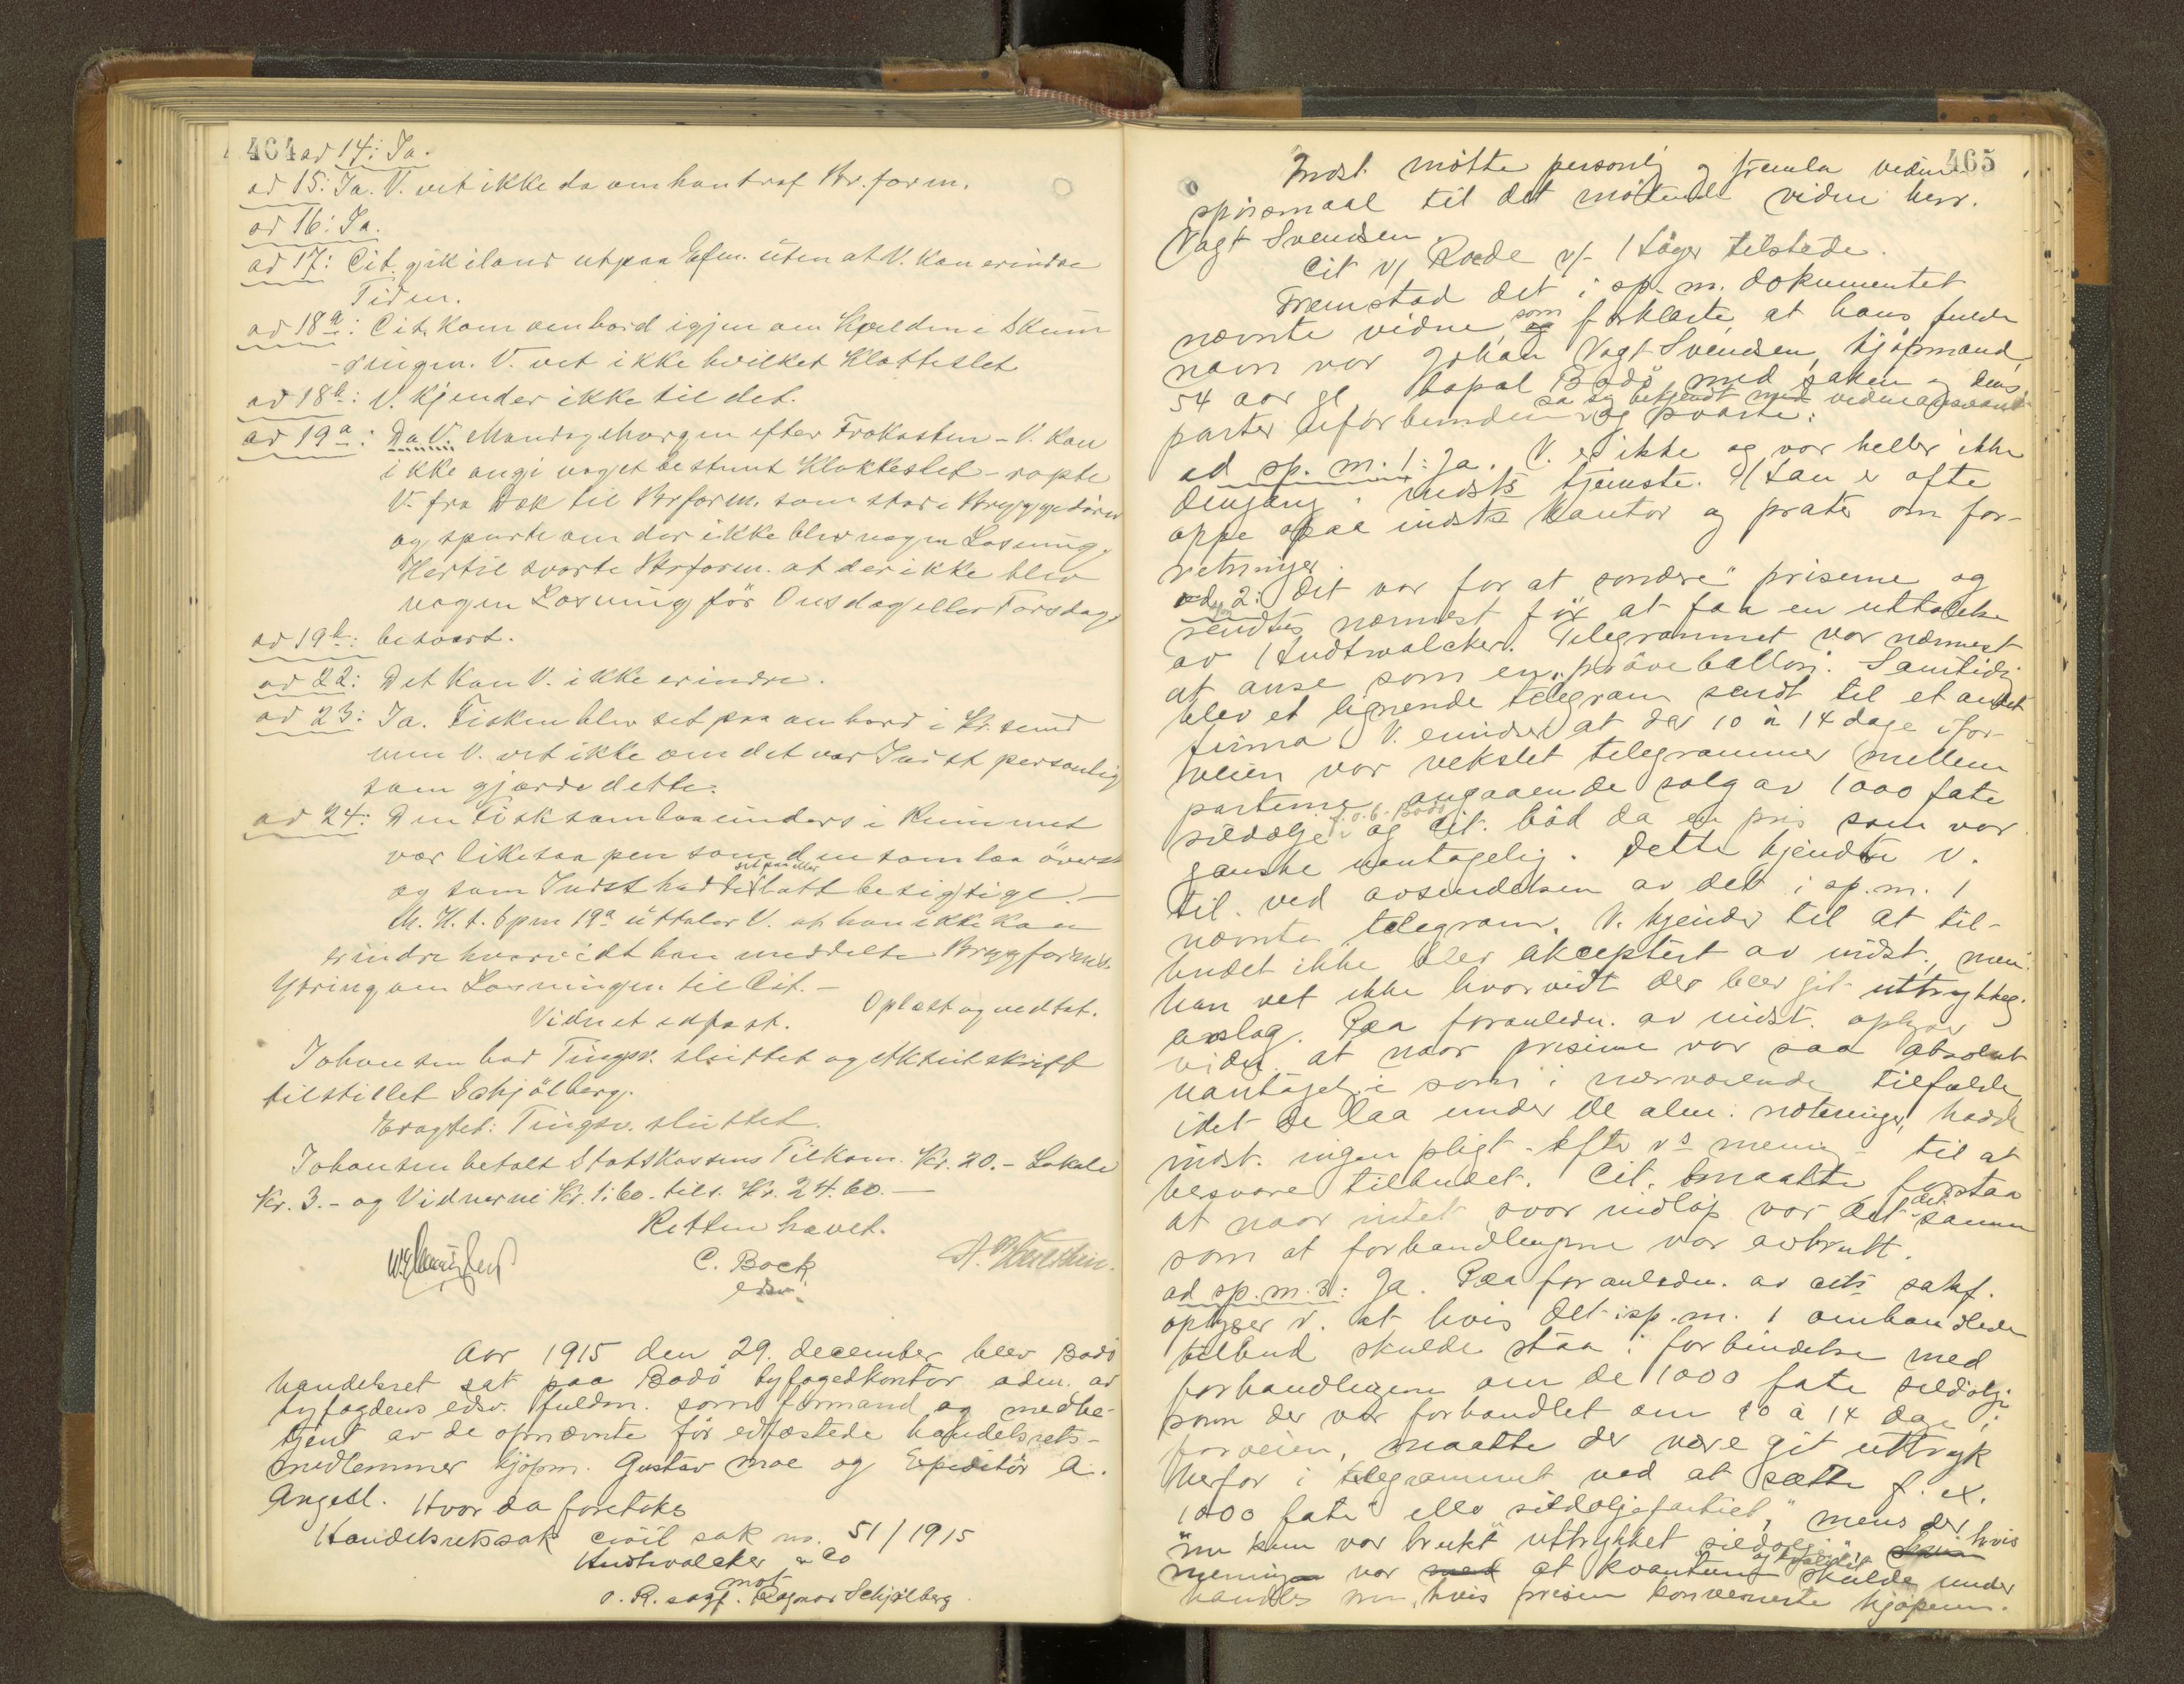 464 ad 14: Ja.
ad 15: Ja. V. vet ikke da om han traf Br.form.
ad 16: Ja.
ad 17: Cit. gik iland utpaa Efm. uten at V. kan erindre
Tiden.
ad 18a: Cit. kom ombord igjen om Kvelden i Skum
-ringen. V. vet ikke hvilket Klokkeslet
ad 18b: V. kjender ikke til det.
ad 19a: Da V. Mandag Morgen efter Frokosten - V. kan
ikke angi noget bestemt Klokkeslet - ropte
V. fra Dæk til Brform. som stod i Bryggedören
og spurte om der ikke blev nogen Losning.
Hertil svarte Brform. at der ikke blev
nogen Losning för Onsdag eller Torsdag.
ad 19b: besvart.
ad 22: Det kan V. ikke erindre.
ad 23: Ja. Fisken blev set paa ombord i Kr.sund
men V. vet ikke om det var Indst personlig
som gjorde dette.
ad 24: Den Fisk som laa underst i Rummet
var likesaa pen som den som laa överst
og som Indst hadde set paa eller latt besigtige. -
M. H. t. Spm 19a uttaler V. at han ikke kan
erindre hvorvidt han meddelte Bryggform.s
Ytring om Losningen til Cit. -
Oplæst og vedtat.
Vidnet edfæst.
Johansen bad Tingsv. sluttet og Aktutskrift
tilstillet Schjölberg.
Eragtet: Tingsv. sluttet.
Johansen betalt Statskassens Tilkom. Kr. 20.- Lokale
Kr. 3.- og Vidnerne Kr. 1.60. tils. Kr. 24.60. -
Retten hævet.
C. Bock
edsv.
Aar 1915 den 29. december blev Bodö
handelsret sat paa Bodö byfogedkontor adm. av
byfogdens edsv. fuldm. som formand og medbe-
tjent av de opnævnte för edfæstede handelsrets-
medlemmer kjöpm. Gustav Moe og Expeditör A.
Angell. Hvor da foretokes
Handelsretssak civil sak no. 51/1915
Hudtwalcker & Co
mot
O. R. sagf. Ragnar Schjölberg
465
Indst. mötte personlig og fremla vidne
spörsmaal til det mötende vidne herr.
Vogt Svendsen.
Cit v/ Rode v/ Höyer tilstede.
Fremstod det i sp. m. dokumentet
nævnte vidne, som forklarte at hans fulde
navn var Johan Vogt Svendsen, kjöpmand
54 aar gl. bopæl Bodö, med saken og dens
parter uforbunden sa sig bekjendt med vidneansvaret og svarte:
ad sp. m. 1: Ja. V. er ikke og var heller ikke
dengang i indsts tjeneste. Han er ofte
oppe paa indsts kontor og prater om for-
retninger.
ad 2: Det var for at sondere" priserne og
sendtes nærmest för at faa en uttalelse
av Hudtwalcker. Telegrammet var nærmest
at anse som en "pröveballon". Samtidig
blev et lignende telegram sendt til et andet
firma V. erindrer at der 10 à 14 dage ifor-
veien var vekslet telegrammer mellem
parterne angaaende salg av 1000 fate
sildolje f.o.b. Bodö og cit. böd da en pris som var
ganske uantagelig. Dette kjendte V.
til ved avsendelsen av det i sp. m. 1
nævnte telegram. V. kjender til at til-
budet ikke blev akceptert av indst., men
han vet ikke hvorvidt der blev git uttrykkelig
avslag. Paa foranledn. av indst. oplyser
vidn. at naar priserne var saa absolut
uantagelige som i nærværende tilfælde
idet de laa under de alm. noteringer, hadde
indst. ingen pligt - efter vs mening - til at
besvare tilbudet. Cit. maatte forstaa
at naar intet svar indlöp var det det samme
som at forhandlingerne var avbrutt.
ad sp. m. 3: Ja. Paa foranledn. av cits sakf.
oplyser v. at hvis det i sp. m. 1 omhandlede
tilbud skulde staa i forbindelse med
forhandlingerne om de 1000 fate sildolje
som der var forhandlet om 10 à 14 dage i
forveien, maatte der være git uttryk
herfor i telegrammet ved at sætte f. ex.
1000 fate" eller sildoljepartiet," mens der
nu kun var brukt uttrykket sildolje" hvis
mening var at kvantum og kvalitet skulde under
handles om, hvis prisen konvenerte kjöperen.